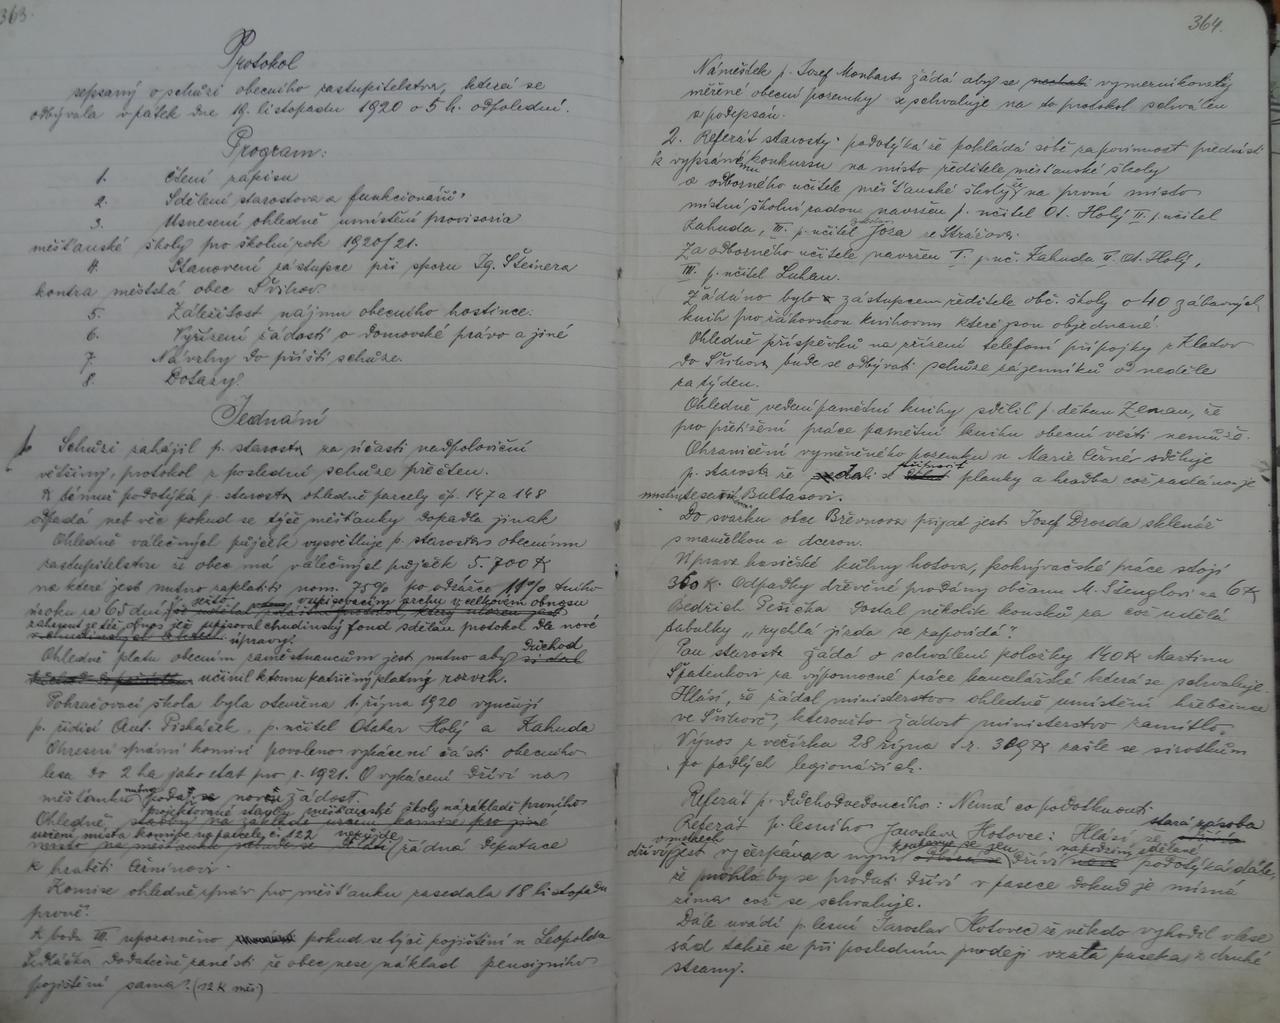 363.
Protokol
sepsaný o schůzi obecního zastupitelstva, která se
odbývala v pátek dne 19. listopadu 1920 o 5 h. odpolední.
Program:
1. Čtení zápisu
2. Sdělení starostova a funkcionářů
3. Usnesení ohledně umístění provisoria
měšťanské školy pro školní rok 1920/21.
4. Stanovení zástupce při sporu Ig. Šteinera
kontra městská obec Švihov.
5. Záležitost nájmu obecního hostince.
6. Vyřízení žádostí o domovské právo a jiné
7. Návrhy do příští schůze.
8. Dotazy.
Jednání
Schůzi zahájil p. starosta za účasti nadpoloviční
většiny, protokol z poslední schůze přečten.
K témuž podotýká p. starosta ohledně parcely čp. 147 a 148
odpadá neb věc pokud se týče měšťanky dopadla jinak
Ohledně válečných půjček vysvětluje p. starosta obecnímu
zastupitelstvu že obec má válečných půjček 5.700 K
na které jest nutno zaplatiti nom. 75% po odrážce
úroku za 65 dní upisovacím archu v celkovém obnosu
chudinský fond sdělán protokol dle nové
úpravy.
Ohledně platu obecním zaměstnancům jest nutno aby důchod
učinil k tomu patřičný platný rozvrh.
Pokračovací škola byla otevřena 1. října 1920 vyučují
p. řídící Ant. Piskáček, p. učitel Otakar Holý a Zahuda
Okresní správní komisí povoleno vykácení části obecního
lesa do 2 ha jako etat pro r. 1921. O vykácení dříví na
měšťanku nutno podat novou žádost.
Ohledně projektované stavby měšťanské školy na základě prvního
určení místa komise na parcely č. 122 vypůjde řádná deputace
k hraběti Černínovi
Komise ohledně zpráv pro měšťanku zasedala 18 listopadu
prvně.
K bodu III. upozorněno pokud se týče pojištění u Leopolda
Sedláčka dodatečně zanésti že obec nese náklad pensijního
pojištění sama. (12 K měs.)
364.
Náměstek p. Josef Monharts žádá aby se
měřené obecní pozemky se schvaluje na to protokol schválen
a podepsán.
2. Referát starosty: podotýká že pokládá sobě za povinnost přednésti
k vypsanému konkursu na místo ředitele měšťanské školy
a odborného učitele měšťanské školy že na první místo
místní školní radou navržen p. učitel Ot. Holý II. p. učitel
Zahuda, III. p. učitel Joza ze Strážova.
Za odborného učitele navržen I. p. uč. Zahuda II. Ot. Holý,
III. p. učitel Luhan.
Žádáno bylo zástupcem ředitele obč. školy o 40 zábavných
knih pro žákovskou knihovnu které jsou objednané.
Ohledně příspěvků na zřízení telefoní přípojky z Klatov
do Švihova bude se odbývati schůze zájemníků od neděle
za týden.
Ohledně vedení pamětní knihy sdělil p. děkan Zeman, že
pro přetížení práce pamětní knihu obecní vésti nemůže.
Ohraničení vyměněného pozemku u Marie Černé sděluje
p. starosta že dali se připravit planky a hradba což zadáno je
mistru tesařskému Bultasovi.
Do svazku obce Březnova přijat jest Josef Drozda sklenář
s manželkou a dcerou.
Úprava hasičské kůlny hotova, pokrývačské práce stojí
360 K. Odpadky dřevěné prodány občanu M. Štenglovi za 6 K
Bedřich Pešička dostal několik kousků za což udělá
tabulky „rychlá jízda se zapovídá“.
Pan starosta žádá o schválení položky 140 K Martinu
Špatenkovi za výpomocné práce kancelářské která se schvaluje.
Hlásí, že žádal ministerstvo ohledně umístění hřebčince
ve Švihově, kteroužto žádost ministerstvo zamítlo.
Výnos z večírku 28 října t. r. 309 K zašle se sirotkům
po padlých legionářích.
Referát p. důchodvedoucího: Nemá co podotknouti
Referát p. lesního Jaroslava Hotovce: Hlásí, že stará zásoba
dříví v mezích jest vyčerpána a nyní prodavuje se jen na podzim zdělané
dříví podotýká dále,
že mohla by se prodati dříví v pasece dokud je mírná
zima což se schvaluje.
Dále uvádí p. lesní Jaroslav Hotovec že někdo vyhodil v lese
sád takže se při posledním prodeji vzata paseka z druhé
strany.